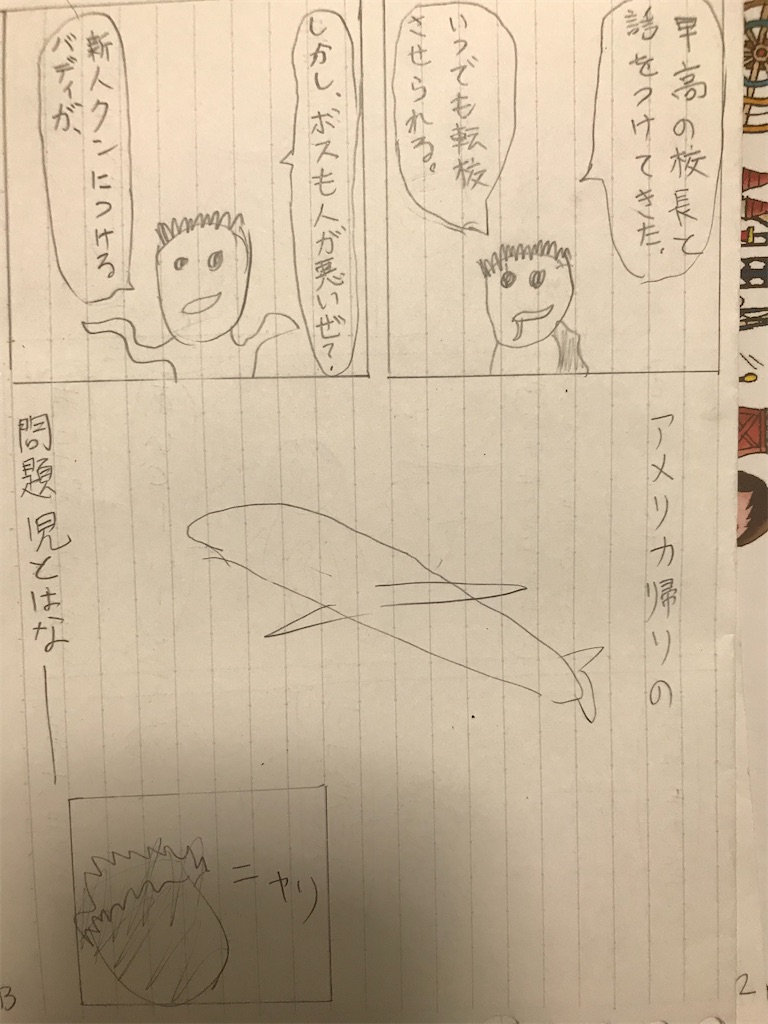 早高の校長と
話をつけてきた。
いつでも転校
させられる。
しかし、ボスも人が悪いぜ?
新人クンにつける
バディが、
アメリカ帰りの
問題児とはなー
ニヤリ
2
B